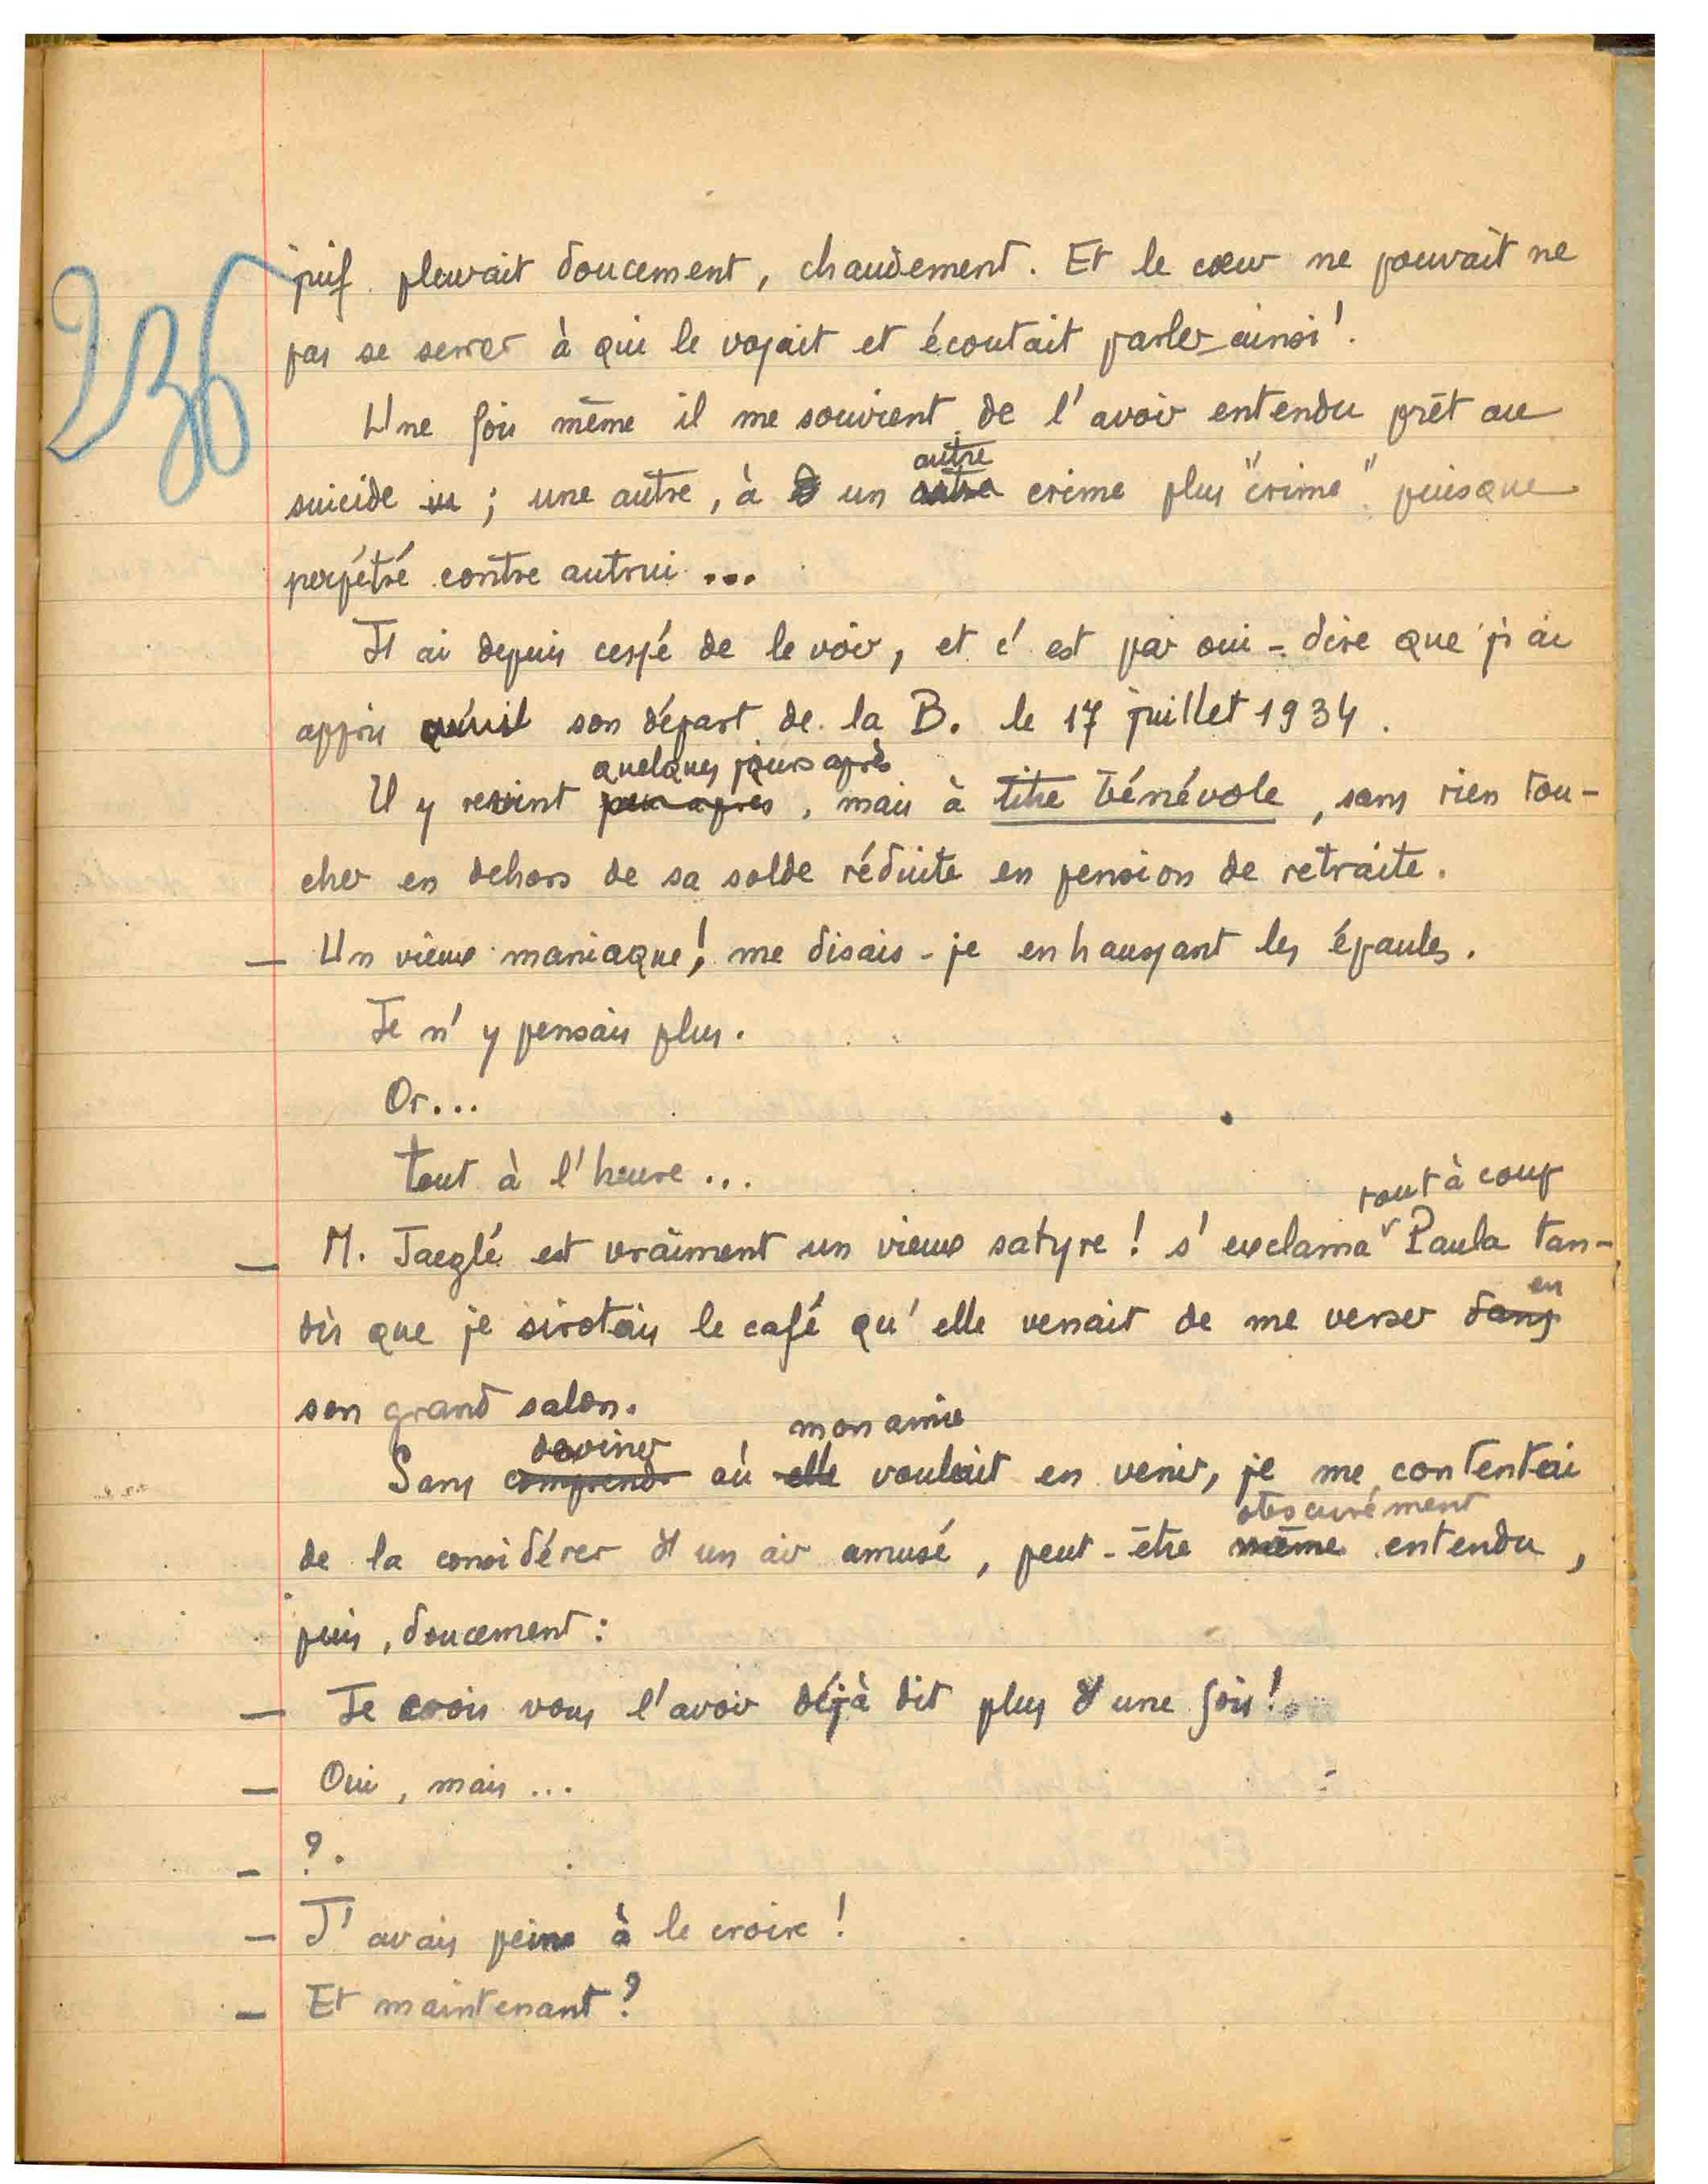 236
juif pleurait doucement, chaudement. Et le cœur ne pouvait ne
pas se serrer à qui le voyait et écoutait parler ainsi !
Une fois même il me souvient de l'avoir entendu prêt au
autre
suicide ; une autre, à un autre crime plus "crime" puisque
perpétré contre autrui ...
J'ai depuis cessé de le voir, et c'est par oui-dire que j'ai
appris qu'il son départ de la B. le 17 juillet 1934.
quelques jours après
Il y revint peu après, mais à titre bénévole, sans rien tou-
cher en dehors de sa solde réduite en pension de retraite.
— Un vieux maniaque ! me disais-je en haussant les épaules.
Je n'y pensais plus.
Or...
tout à l'heure ...
tout à coup
— M. Jaeglé est vraiment un vieux satyre ! s'exclama Paula tan-
en
dis que je sirotais le café qu'elle venait de me verser dans
son grand salon.
deviner mon amie
Sans comprendre où elle voulait en venir, je me contentai
obscurément
de la considérer d'un air amusé, peut-être même entendu,
puis, doucement :
— Je crois vous l'avoir déjà dit plus d'une fois !
— Oui, mais ...
— ?.
— J'avais peine à le croire !
— Et maintenant ?